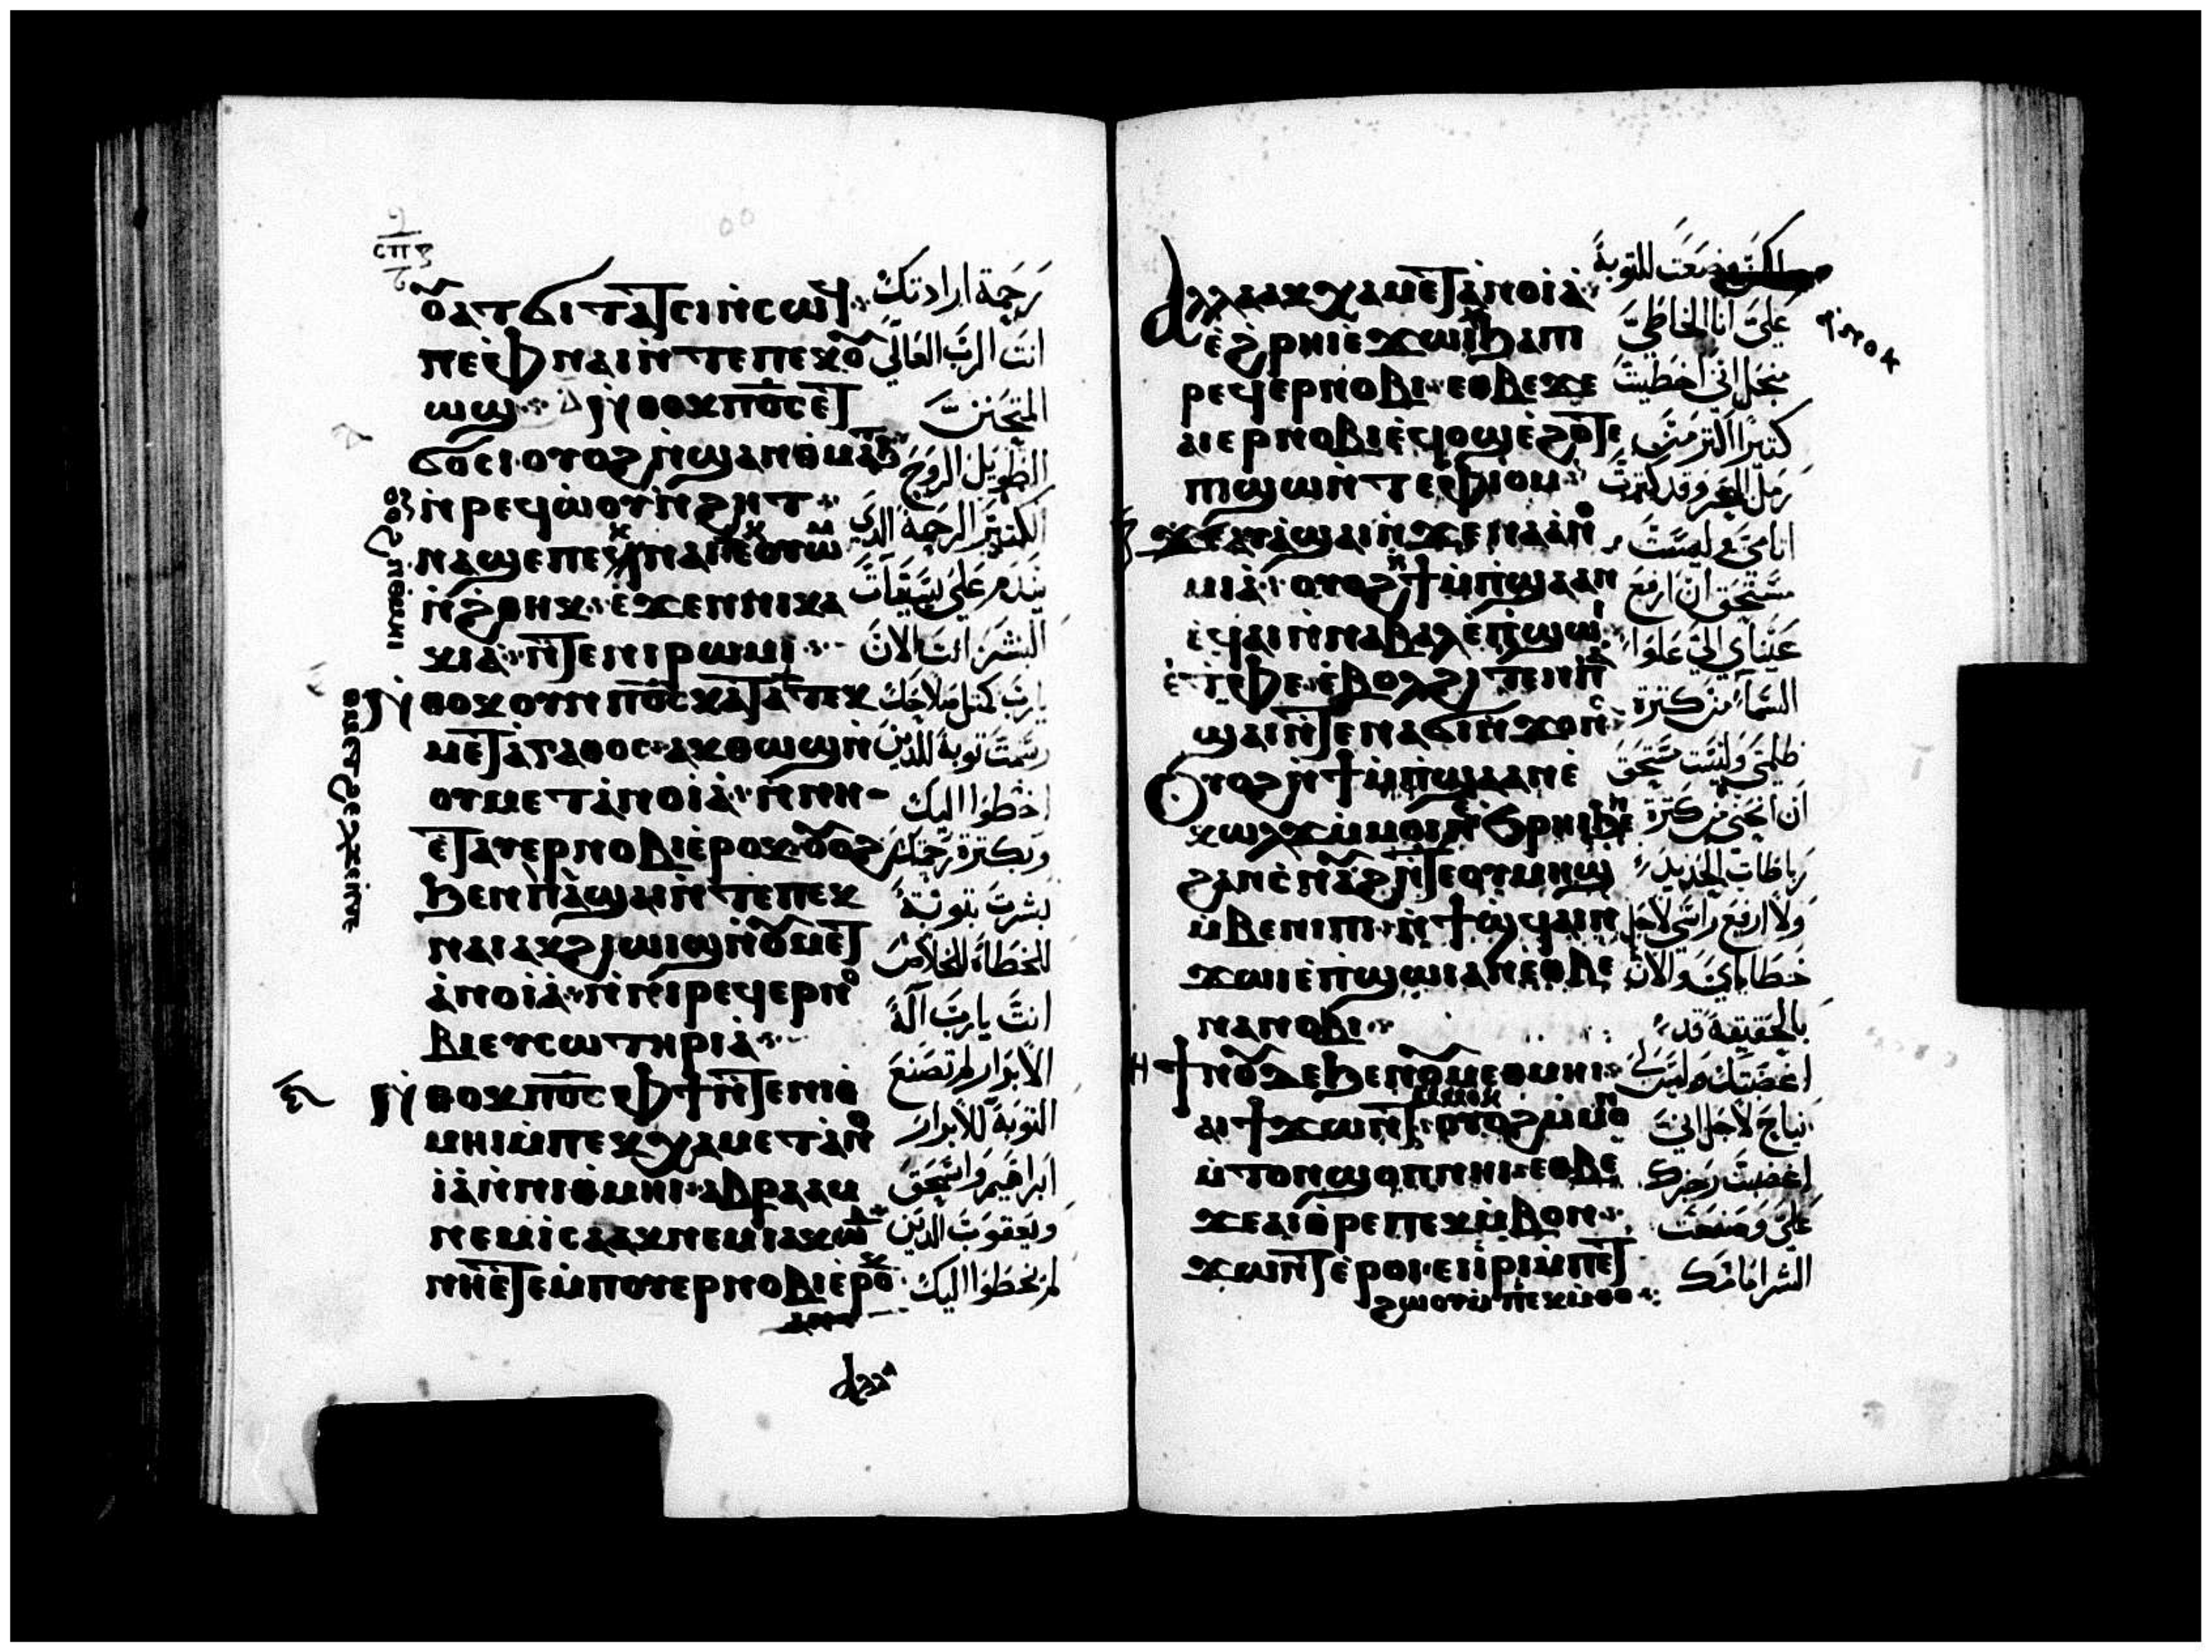 ⲥⲡⲍ
ⲟ̃ⲁⲧϭⲓⲧⲁⲧⲥⲓⲛ̇ⲥⲱϥ
ⲡⲉ ⲫⲛⲁⲓⲛ̇ⲧⲉⲡⲉⲕⲟ̃
ⲱϣ ⲛ̇ⲑⲟⲕ ⲡⲟ̅ⲥ̅ ⲉⲧ
ϭⲟⲥⲓ·ⲟⲩⲟϩ ⲛ̇ϣⲁⲛⲑⲙⲁϧ
ⲛ̇ⲣⲉϥⲱ̇ⲟⲩⲛ̇ϩⲏⲧ
ⲛⲁϣⲉⲡⲉⲕⲛⲁⲓ ⲉⲟⲩⲱⲙ
ⲛ̇ϩⲑⲏⲕ ⲉ̇ϫⲉⲛⲛⲓⲕⲁ
ⲕⲓⲁ̇ ⲛ̇ⲧⲉⲛⲓⲣⲱⲙⲓ
ⲛ̇ⲑⲟⲕ ⲟⲩⲛ ⲡⲟ̅ⲥ̅ ⲕⲁⲧⲁⲧⲉⲕ
ⲙⲉⲧⲁ̇ⲅⲁⲑⲟⲥ ⲁⲕⲑⲱϣⲛ̇
ⲟⲩⲙⲉⲧⲁ̇ⲛⲟⲓⲁ̇ ⲛ̇ⲛⲏ
ⲉⲧⲁⲩⲉⲣⲛⲟⲃⲓ ⲉ̇ⲣⲟⲕ ⲟ̃ⲟϩ
ϧⲉⲛ ⲡⲁ̇ϣⲁⲓ ⲛ̇ⲧⲉⲡⲉⲕ
ⲛⲁⲓ ⲁⲕϩⲓⲱⲓϣ ⲛ̇ⲟ̃ⲙⲉⲧ
ⲁ̇ⲛⲟⲓⲁ̇ ⲛ̇ⲛⲓⲣⲉϥⲉⲣⲛⲟ
ⲃⲓ ⲉⲩⲥⲱⲧⲏⲣⲓⲁ̇
ⲛ̇ⲑⲟⲕ ⲡⲟ̅ⲥ̅ ⲫϯ ⲛ̇ⲧⲉⲛⲓⲑ
ⲙⲏⲓ ⲙ̇ⲡⲉⲕⲭⲁⲙⲉⲧⲁⲛⲟ
ⲓⲁ̇ ⲛ̇ⲛⲓⲑⲙⲏⲓ ⲁⲃⲣⲁⲁⲙ
ⲛⲉⲙ ⲓⲥⲁⲁⲕ ⲛⲉⲙ ⲓⲁⲕⲱⲃ
ⲛⲏⲉ̇ⲧⲉ ⲙ̇ⲡⲟⲩⲉⲣⲛⲟⲃⲓ ⲉ̇ⲣⲟⲕ
ⲁⲗⲗⲁ
رحمة ارادتك
انت الرب العالي
المتحنن
الطويل الروح
الكثير الرحمة الذي
يندم على سيّات
البشر انت الان
يا رب كمثل صلاحك
رسمت توبة للذين
اخطوا اليك
وبكثرة رحمتك
بشرت بتوبة
للخطاة للخلاص
انت يا رب اله
الابرار لم تصنع
التوبة للابرار
ابراهيم واسحق
ويعقوب الذين
لم يخطوا اليك
ⲁⲗⲗⲁ ⲁⲕⲭⲁⲙⲉⲧⲁ̇ⲛⲟⲓⲁ̇
ⲉ̇ϩⲣⲏⲓ ⲉ̇ϫⲱⲓ ϧⲁ ⲡⲓ
ⲣⲉϥⲉⲣⲛⲟⲃⲓ ⲉⲑⲃⲉϫⲉ
ⲁⲓⲉⲣⲛⲟⲃⲓ ⲉ̇ϥⲟϣ ⲉ̇ϩⲟⲧⲉ
ⲡⲓϣⲱ ⲛ̇ⲧⲉ ⲫⲓⲟⲙ
ϫⲉ ⲁⲩⲁ̇ϣⲁⲓ ⲛ̇ϫⲉ ⲛⲁⲁ̇ⲛⲟ
ⲙⲓⲁ̇ ⲟⲩⲟϩ ⲛϯⲙ̇ⲡϣⲁ ⲁⲛ
ⲉ̇ϥⲁⲓ ⲛ̇ⲛⲁⲃⲁⲗ ⲉ̇ⲡϣⲱⲓ
ⲉ̇ⲧⲫⲉ ⲉ̇ⲃⲟⲗϩⲓⲧⲉⲛ ⲡⲁ̇
ϣⲁⲓ ⲛ̇ⲧⲉ ⲛⲁϭⲓⲛ̇ϫⲟⲛⲥ
ⲟⲩⲟϩ ⲛ̇ϯⲙ̇ⲡϣⲁ ⲁⲛ ⲉ̇
ⲕⲱⲗϫ ⲙ̇ⲙⲟⲓ ⲉ̇ϧⲣⲏⲓ ϧⲉⲛ
ϩⲁⲛⲥⲛⲁ̃ϩ ⲛ̇ⲧⲉ ⲟⲩⲙⲏϣ
ⲙ̇ⲃⲉⲛⲓⲡⲓ ⲛ̇ϯⲱ̇ϥⲁⲓ ⲛ̇
ϫⲱⲓ ⲉ̇ⲡϣⲱⲓ ⲁⲛ ⲉⲑⲃⲉ
ⲛⲁⲛⲟⲃⲓ
ϯⲛⲟ̃ ⲇⲉ ϧⲉⲛ ⲟ̃ⲙⲉⲑⲙⲏⲓ
ⲁⲓϯϫⲱⲛⲧ ⲙ̇ⲙⲟⲕ ⲟⲩⲟϩ ⲙ̇ⲙⲟⲛ
ⲙ̇ⲧⲟⲛ ϣⲟⲡ ⲛⲏⲓ ⲉⲑⲃⲉ
ϫⲉ ⲁⲓⲑⲣⲉ ⲡⲉⲕⲙ̇ⲃⲟⲛ
ϫⲱⲛⲧ ⲉ̇ⲣⲟⲓ ⲉⲓⲓ̇ⲣⲓ ⲙ̇ⲡⲉⲧ
ϩⲱⲟⲩ ⲙ̇ⲡⲉⲕⲙ̇ⲑⲟ
لكن وضعت للتوبة
علي انا الخاطي
من اجل اني اخطيت
كثيرا اكثر من
رمل البحر وقد كثرت
اثامي ولست
مستحق ان ارفع
عيناي الى علوا
السماء من كثرة
ظلمي ولست مستحق
ان انحني من كثرة
رباطات الحديد
ولا ارفع راسي لاجل
خطاياي والان
بالحقيقة قد
اغضبتك وليس لي
نياح لاجل اني
اغضبت رجزك
علي وصنعت
الشر امامك